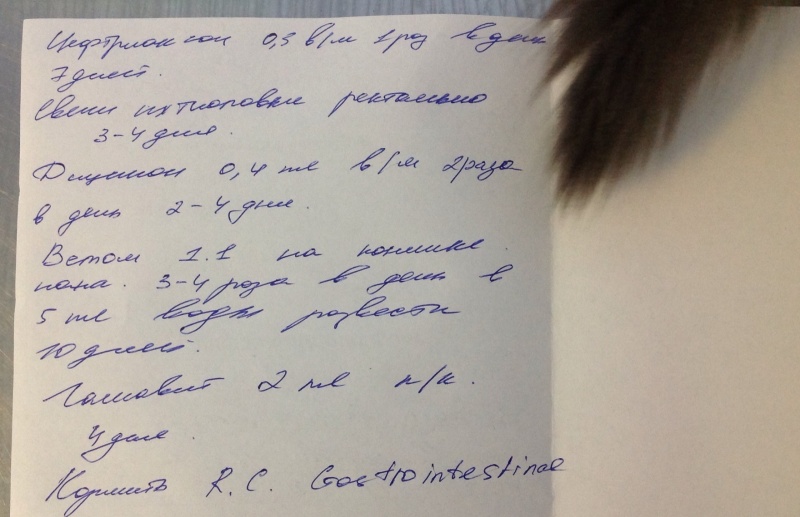 Цефтриаксон 0,3 в/м 1 раз в день
7 дней.
Свечи ихтиоловые ректально
3-4 дня.
Дицинон 0,4 мл в/м 2 раза
в день 2-4 дня.
Ветом 1.1 на кончике
ножа. 3-4 раза в день в
5 мл воды развести
10 дней.
Гамавит 2 мл п/к.
4 дня.
Кормить R.C. Gastrointestinal